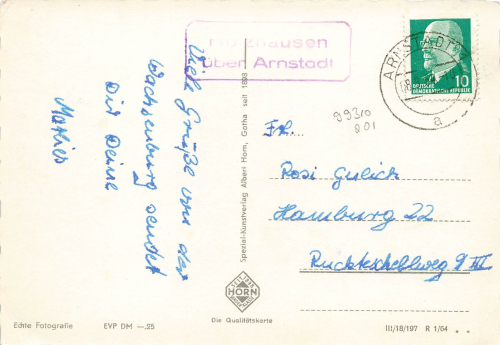 Holzhausen
über Arnstadt
Viele Grüße von der
Wachsenburg sendet
Dir Deine
ARNSTADT
a
10
DEUTSCHE
DEMOKRATISCHE REPUBLIK
99310
801
Frl.
Rosi Gulich
Hamburg 22
Rückteschellweg 9 III
Spezial-Kunstverlag Albert Horn, Gotha seit 1898
HORN
Die Qualitätskarte
Echte Fotografie EVP DM —.25
III/18/197 R 1/64